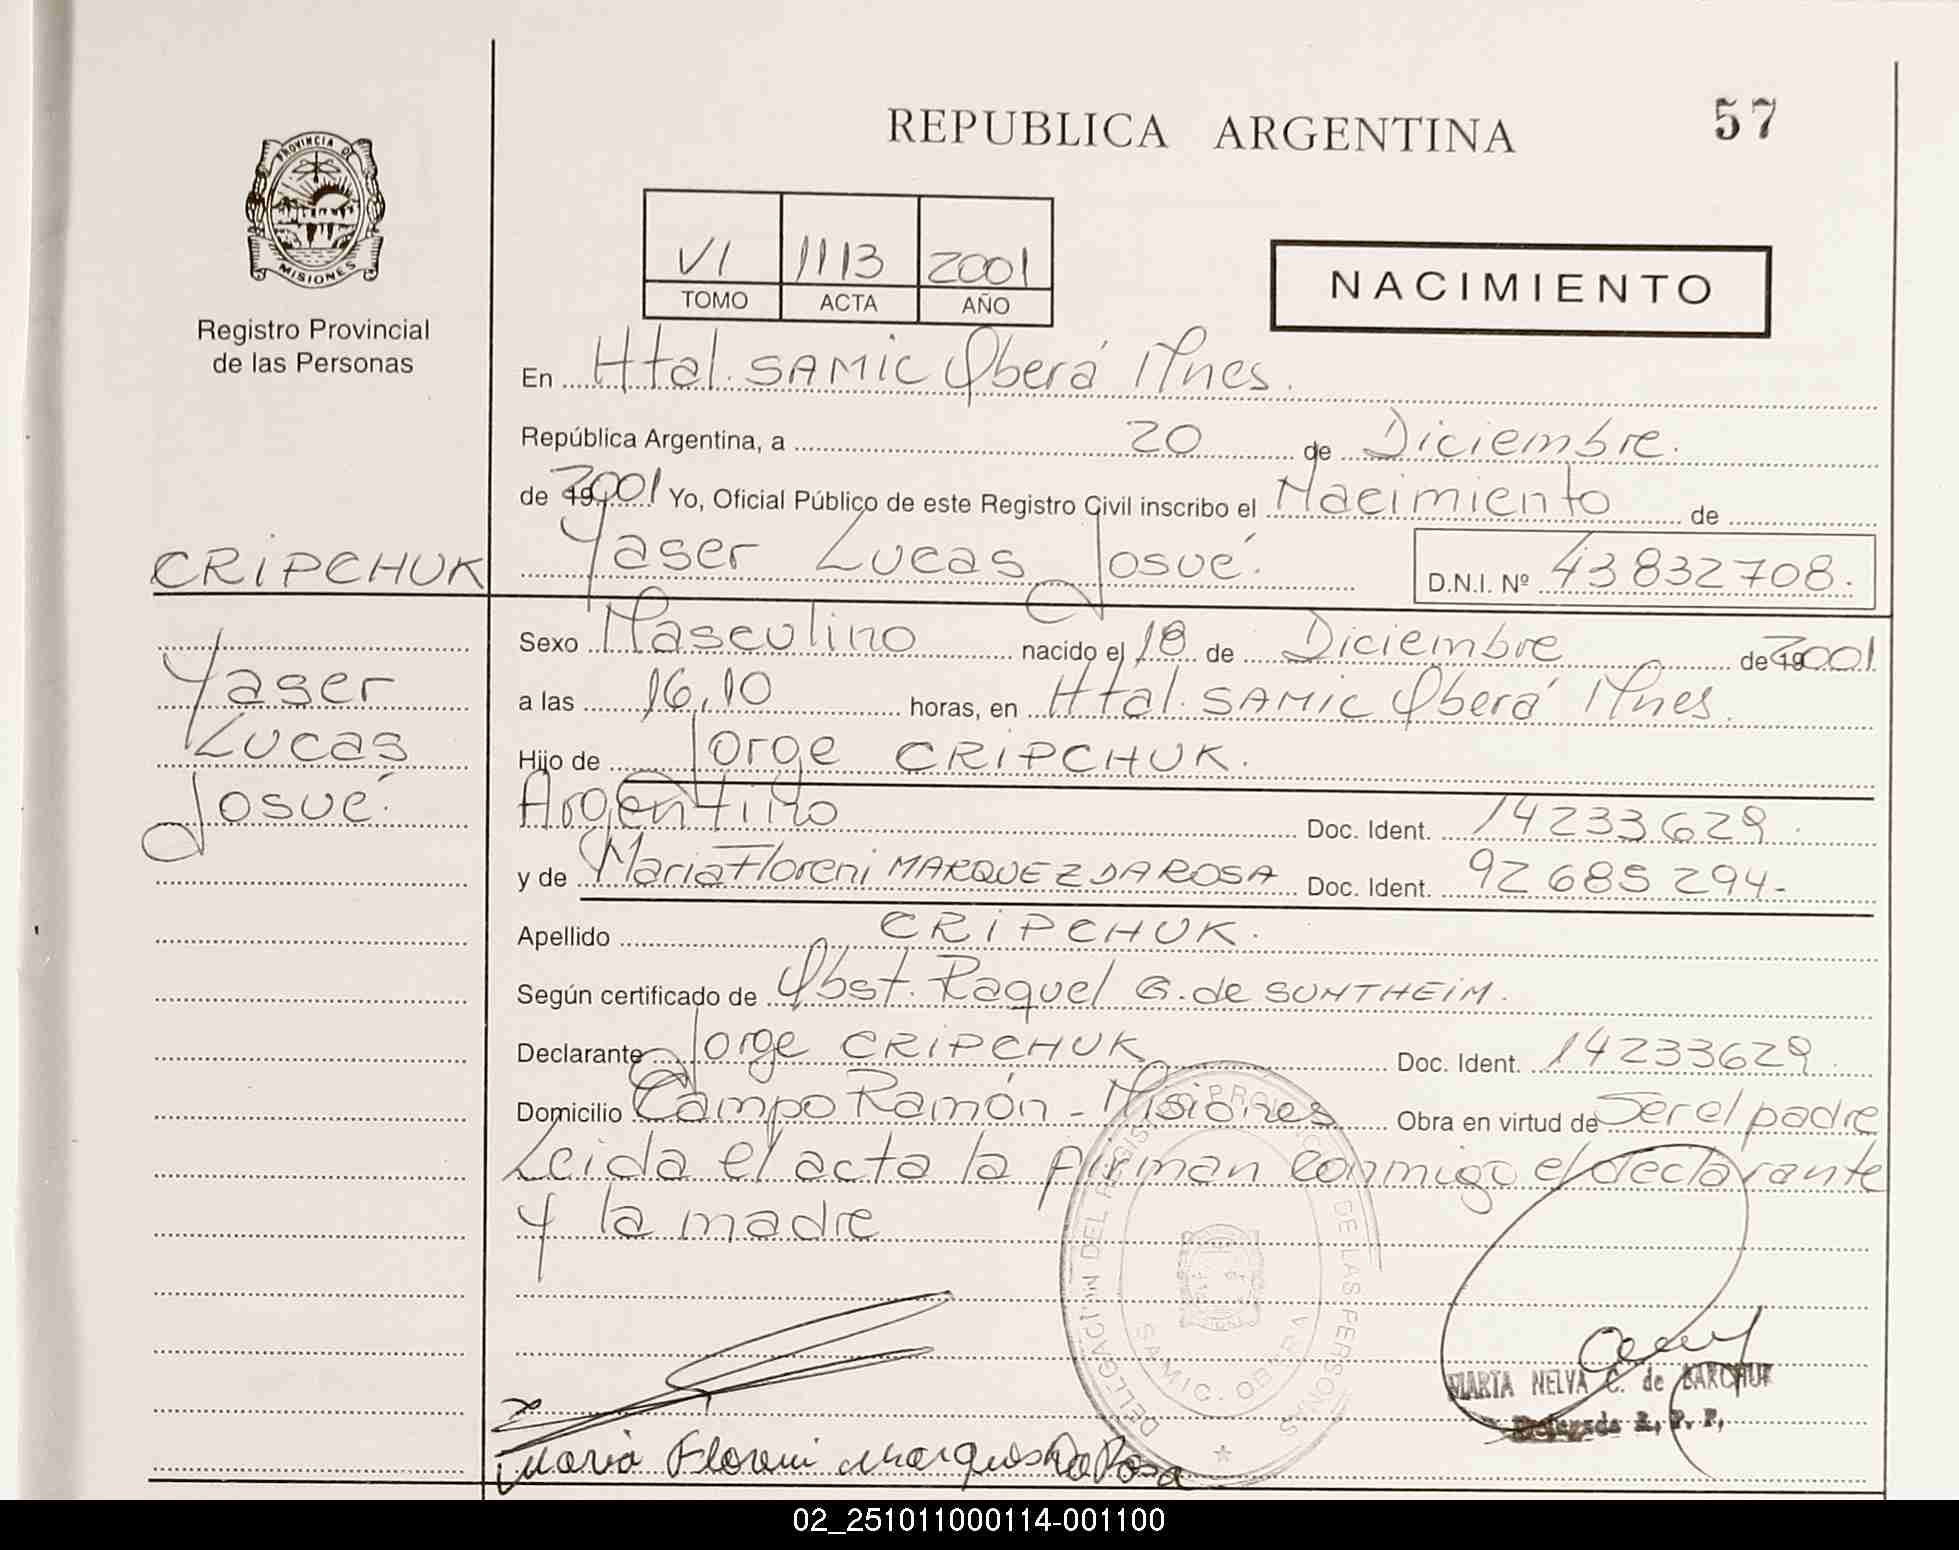 REPUBLICA ARGENTINA
57
PROVINCIA DE
MISIONES
Registro Provincial
de las Personas
VI 1113 2001
TOMO ACTA AÑO
NACIMIENTO
En Htal. SAMIC Oberá Mnes.
República Argentina, a 20 de Diciembre.
de 2001 Yo, Oficial Público de este Registro Civil inscribo el Nacimiento de
CRIPCHUK
Yaser Lucas Josué.
D.N.I. Nº 43832708.
Yaser
Lucas
Josué.
Sexo Masculino nacido el 18 de Diciembre de 2001
a las 16,10 horas, en Htal. SAMIC Oberá Mnes.
Hijo de Jorge CRIPCHUK.
Argentino Doc. Ident. 14233629.
y de Maria Floreni MARQUEZ DA ROSA Doc. Ident. 92685294-
Apellido CRIPCHUK.
Según certificado de Obst. Raquel G. de SUNTHEIM.
Declarante Jorge CRIPCHUK Doc. Ident. 14233629.
Domicilio Campo Ramón - Misiones Obra en virtud de Ser el padre
Leida el acta la firman conmigo el declarante
y la madre
DELEGACION DEL REGISTRO PROVINCIAL DE LAS PERSONAS
SAMIC. OBERA
MARTA NELVA C. de BARCHUK
Delegada R. P. P.
Maria Floreni Marques Da Rosa
02_251011000114-001100